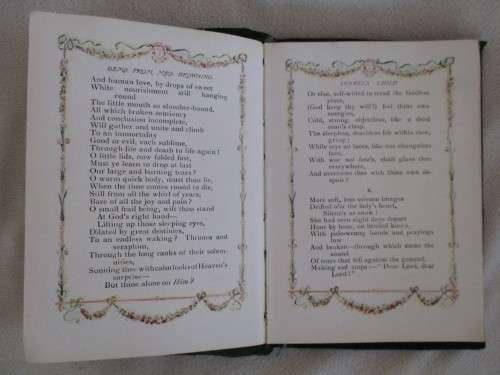 GEMS FROM MRS. BROWNING
And human love, by drops of sweet
White nourishment still hanging
round
The little mouth so slumber-bound.
All which broken sentiency
And conclusion incomplete,
Will gather and unite and climb
To an immortality
Good or evil, each sublime,
Through life and death to life again!
O little lids, now folded fast,
Must ye learn to drop at last
Our large and burning tears?
O warm quick body, must thou lie,
When the time comes round to die,
Still from all the whirl of years,
Bare of all the joy and pain?
O small frail being, wilt thou stand
At God's right hand—
Lifting up those sleeping eyes,
Dilated by great destinies,
To an endless waking? Thrones and
seraphim,
Through the long ranks of their solem-
nities,
Sunning thee with calm looks of Heaven's
surprise—
But thine alone on Him?
ISOBEL'S CHILD
Or else, self-willed to tread the Godless
place,
(God keep thy will!) feel thine own
energies,
Cold, strong, objectless, like a dead
man's clasp,
The sleepless, deathless life within thee,
grasp;
While myriad faces, like one changeless
face,
With woe not love's, shall glass thee
everywhere,
And overcome thee with thine own de-
spair?
X.
More soft, less solemn images
Drifted o'er the lady's heart,
Silently as snow:
She had seen eight days depart
Hour by hour, on bended knees,
With pale-wrung hands and prayings
low
And broken—through which came the
sound
Of tears that fell against the ground,
Making sad stops:—"Dear Lord, dear
Lord!"